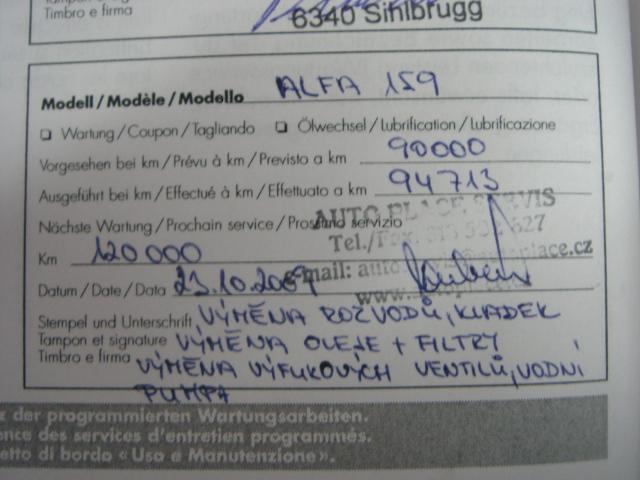 Timbro e firma
6340 Sihlbrugg
Modell / Modèle / Modello ALFA 159
Wartung / Coupon / Tagliando Ölwechsel / Lubrification / Lubrificazione
Vorgesehen bei km / Prévu à km / Previsto a km 90000
Ausgeführt bei km / Effectué à km / Effettuato a km 94713
Nächste Wartung / Prochain service / Prossimo servizio
AUTO PLACE SERVIS
Tel./Fax:
Km 120 000
e-mail:
Datum / Date / Data 23.10.2009
www.
Stempel und Unterschrift VÝMĚNA ROZVODŮ, KLADEK
Tampon et signature VÝMĚNA OLEJE + FILTRY
Timbro e firma VÝMĚNA VÝFUKOVÝCH VENTILŮ, VODNÍ
PUMPA
der programmierten Wartungsarbeiten.
des services d'entretien programmés.
di bordo « Uso e Manutenzione ».